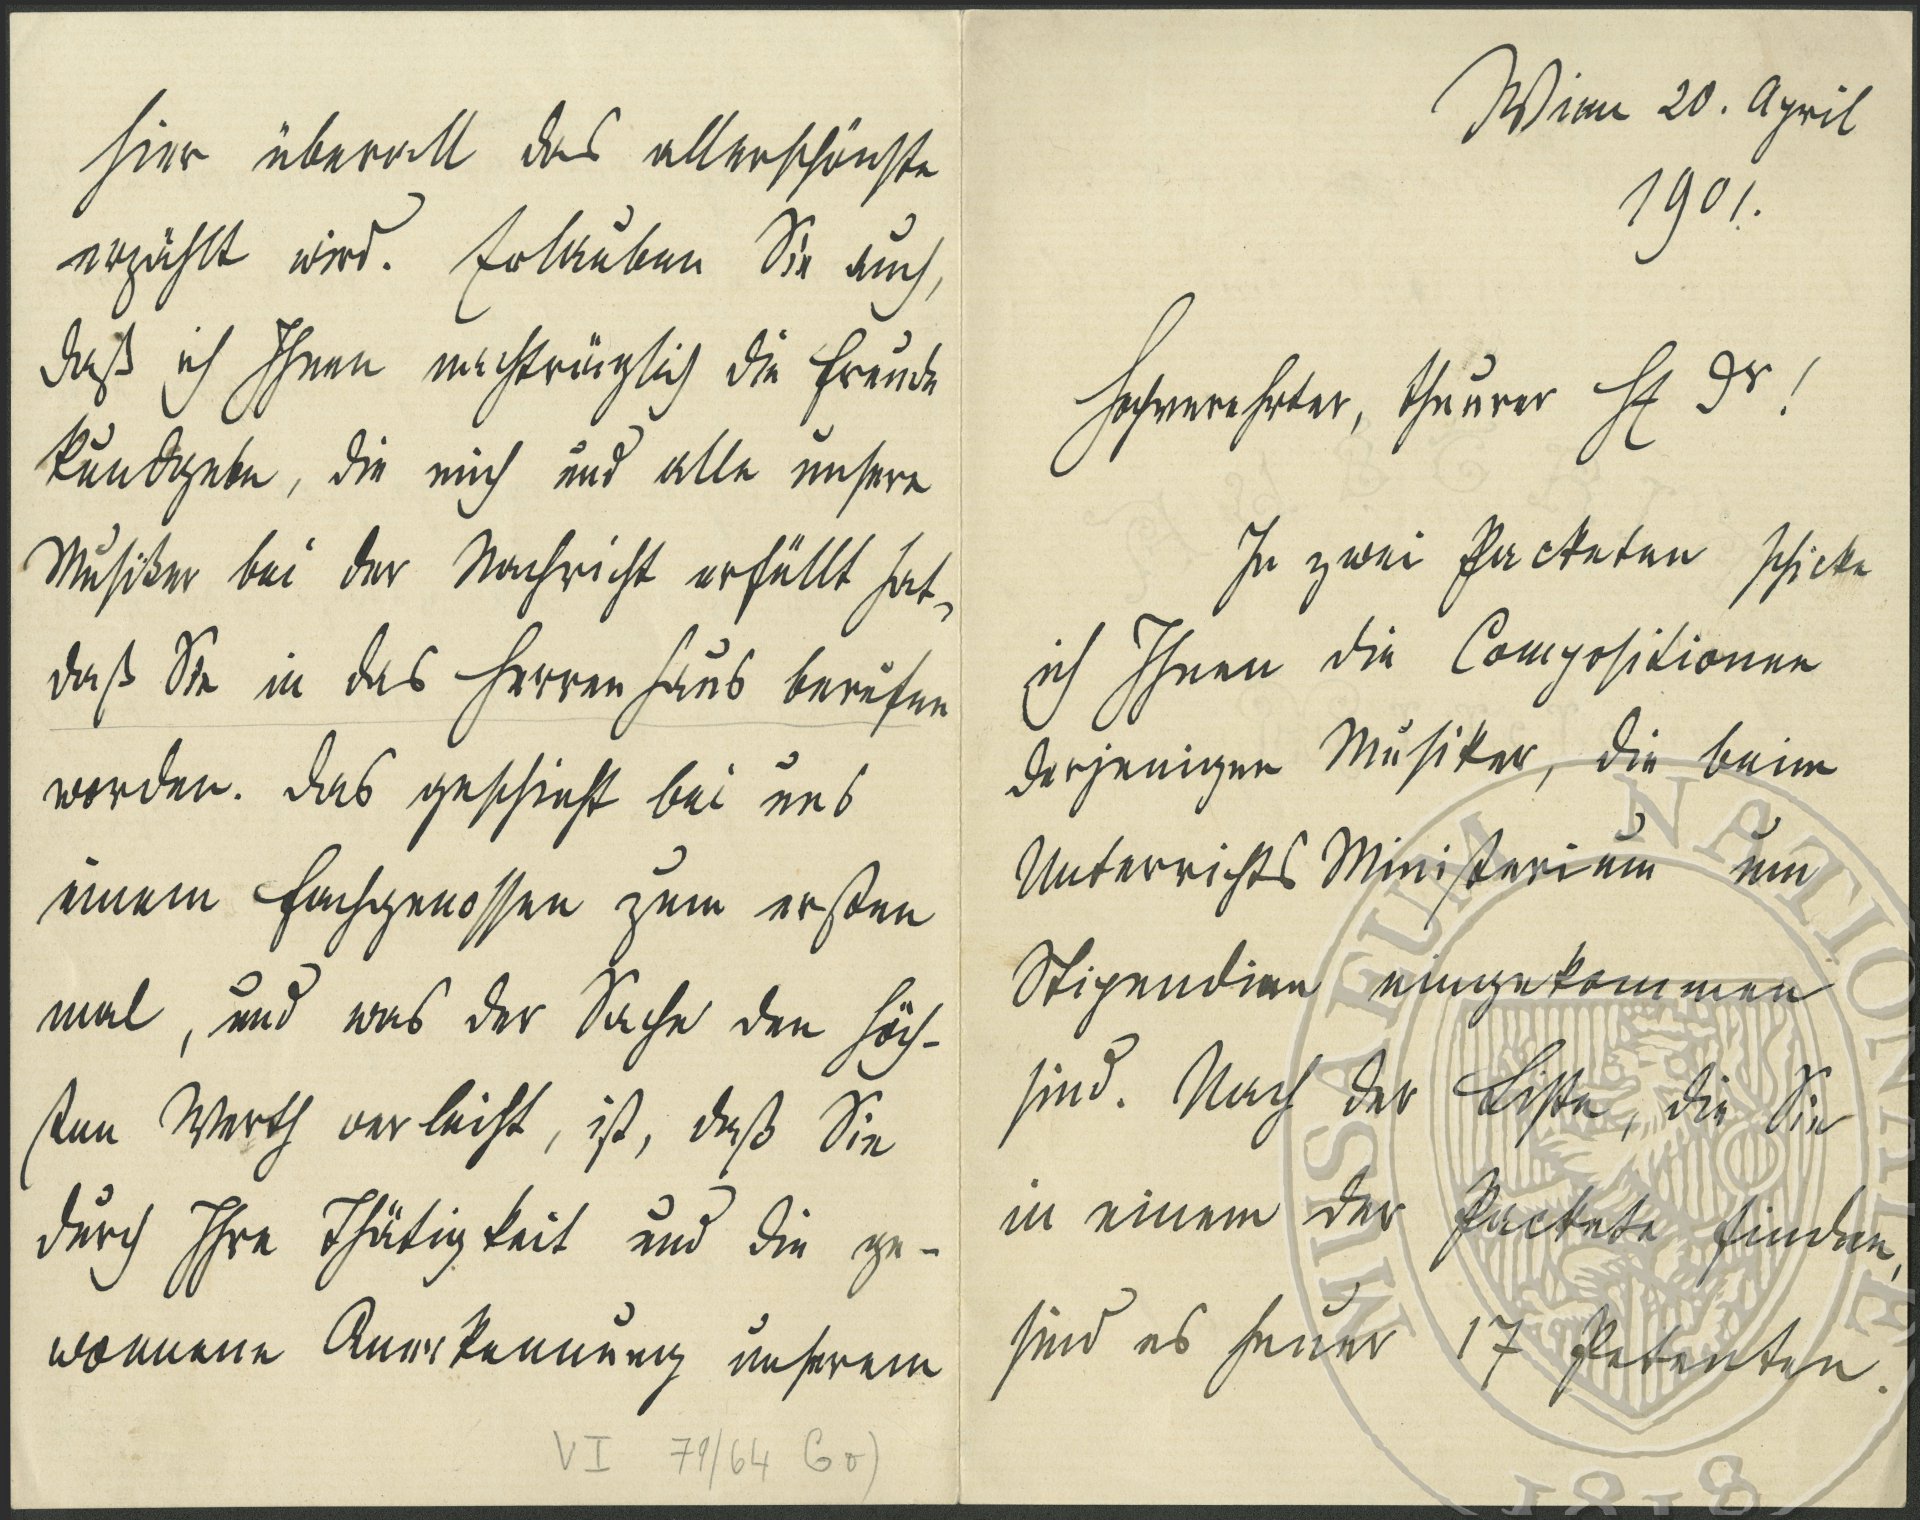 Wien 20. April
1901.
Hochverehrter, theurer H Dr!
In zwei Packeten schicke
ich Ihnen die Compositionen
derjenigen Musiker, die beim
Unterrichts Ministerium um
Stipendien eingekommen
sind. Nach der Liste, die Sie
in einem der Packete finden,
sind es heuer 17 Petenten.
hier überall das allerschönste
erzählt wird. Erlauben Sie auch,
daß ich Ihnen nachträglich die Freude
kundgebe, die mich und alle unsere
Musiker bei der Nachricht erfüllt hat,
daß Sie in das Herrenhaus berufen
worden. Das geschieht bei uns
einem Fachgenossen zum ersten
mal, und was der Sache den höch-
sten Werth verleiht, ist, daß Sie
durch Ihre Thätigkeit und die ge-
wonnene Anerkennung unserem
VI 79/64 Go)
MUSAEUM NATIONALE
1818